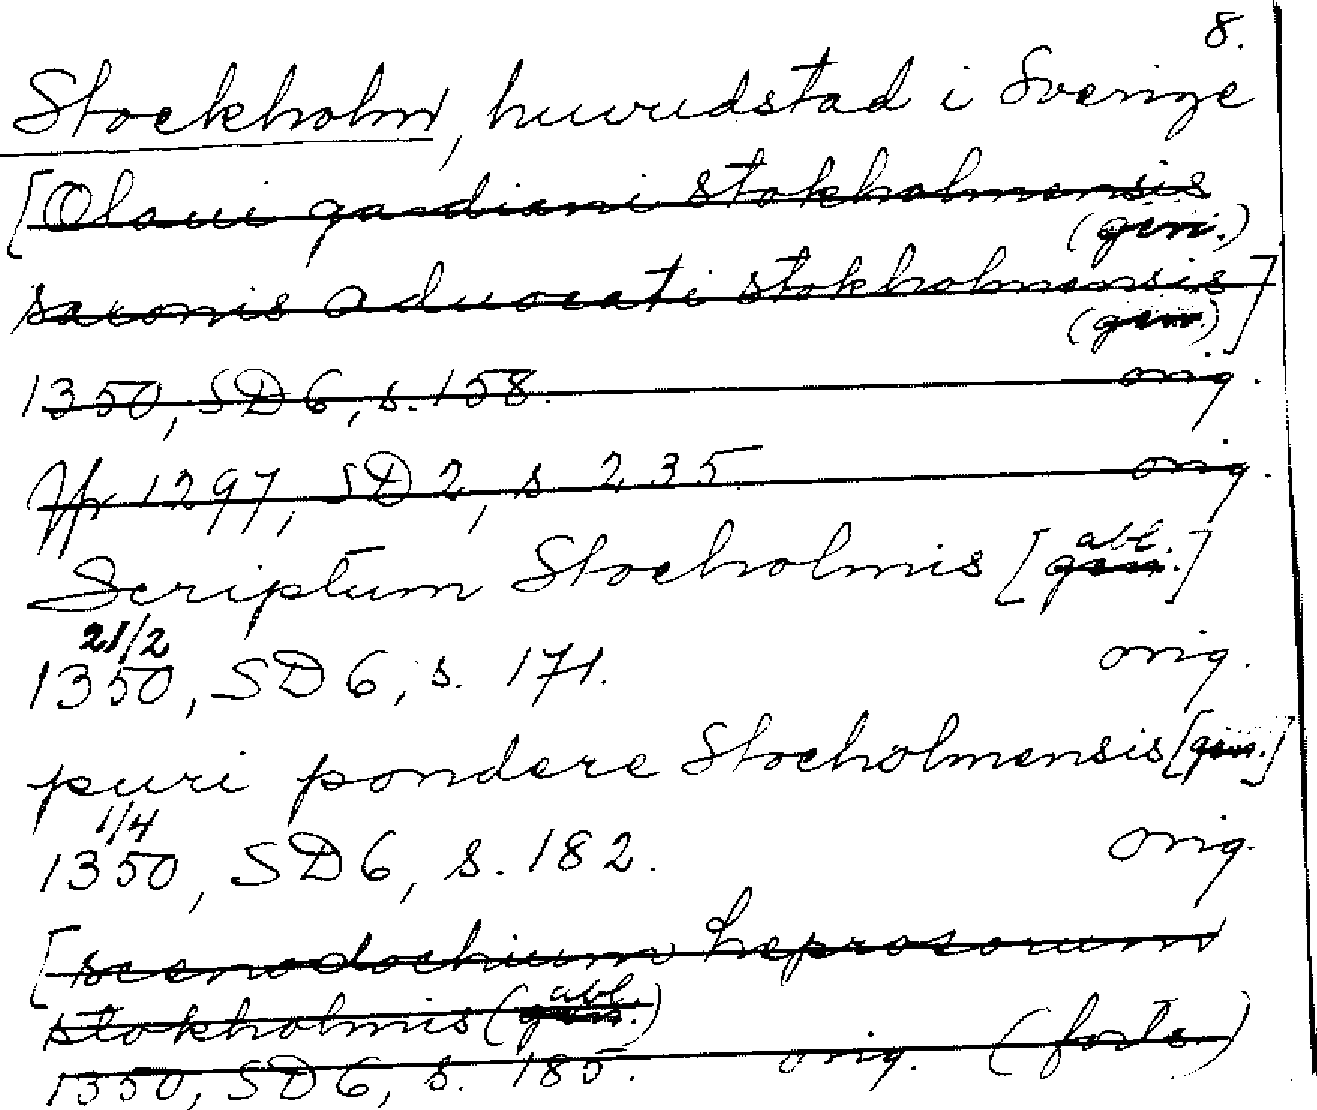 8.
Stockholm, huvudstad i Sverige
[Olaui gardiani stokholmensis
(gen.)
saxonis aduocati stokholmensis]
(gen.)
1350, SD 6, s. 158. orig.
Jfr 1297, SD 2, s. 235 orig.
abl.
Scriptum Stocholmis [gen.]
21/2
1350, SD 6, s. 171. orig.
puri pondere Stocholmensis [gen.]
1/4
1350, SD 6, s. 182. orig.
[scenodochium leprosorum
abl.
stokholmis (gen.)
1350, SD 6, s. 185. orig. (forts.)